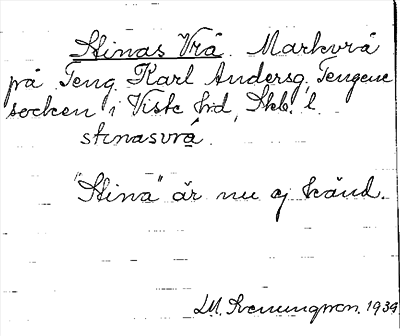 Stinas Vrå. Markvrå
på Teng Karl Andersg, Tengene
socken i Viste hd, Skb. l.
stinasvrå.
"Stina" är nu ej känd.
LM. Svenungsson. 1939